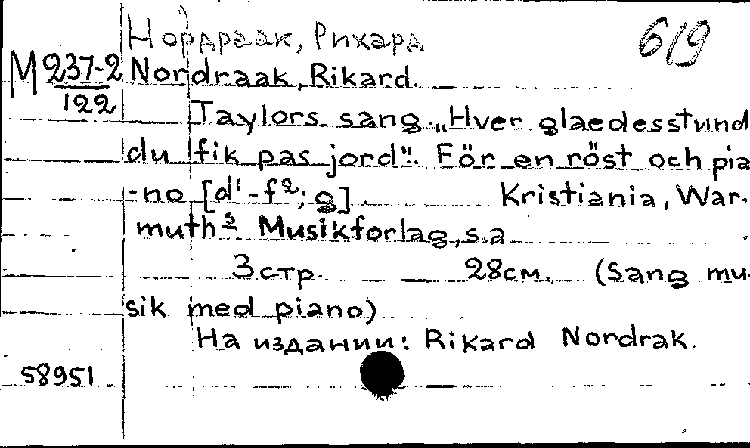 Нордраак, Рихард
619
M 237-2
122
Nordraak, Rikard.
Taylors sang. „Hver glaedesstund
du fik pas jord". För en röst och pia-
-no [d¹-f²; g] Kristiania, War-
muths Musikforlag, s.a
3 стр. 28 см. (Sang mu-
sik med piano)
На издании: Rikard Nordrak.
58951